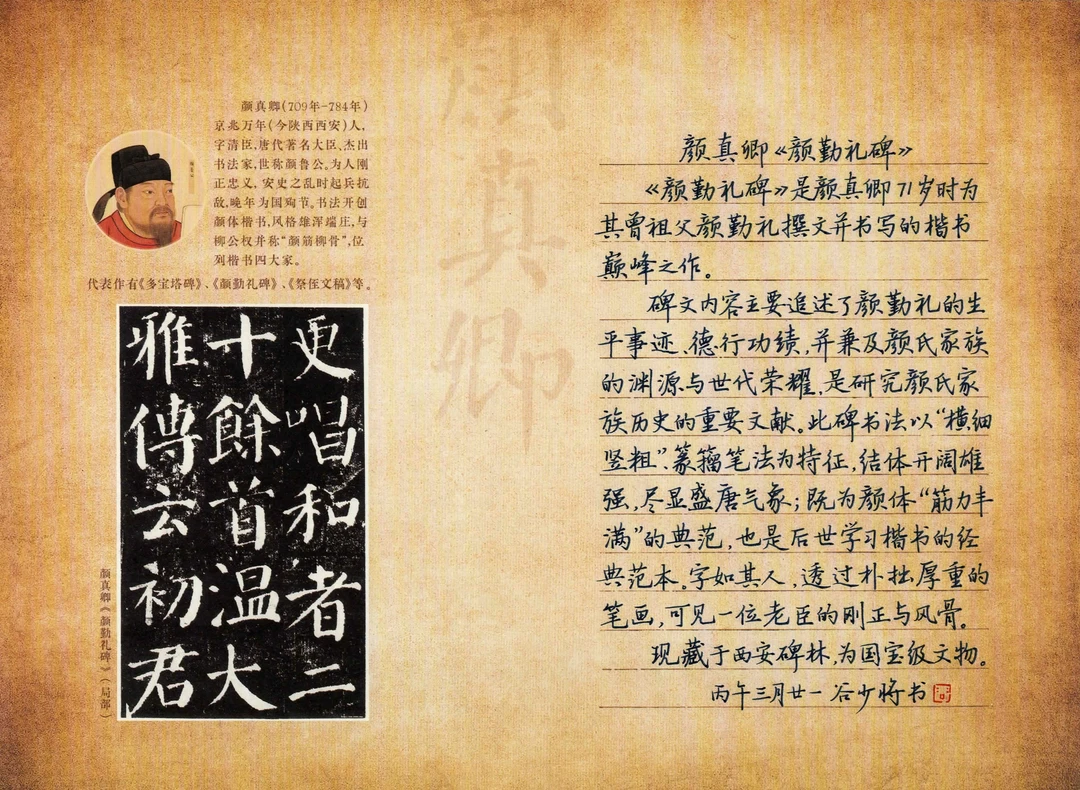 颜真卿
颜真卿(709年-784年)
京兆万年(今陕西西安)人,
字清臣,唐代著名大臣、杰出
书法家,世称颜鲁公。为人刚
正忠义,安史之乱时起兵抗
敌,晚年为国殉节。书法开创
颜体楷书,风格雄浑端庄,与
柳公权并称“颜筋柳骨”,位
列楷书四大家。
代表作有《多宝塔碑》、《颜勤礼碑》、《祭侄文稿》等。
更唱和者二
十餘首温大
雅傳云初君
颜真卿《颜勤礼碑》(局部)
颜真卿《颜勤礼碑》
《颜勤礼碑》是颜真卿71岁时为
其曾祖父颜勤礼撰文并书写的楷书
巅峰之作。
碑文内容主要追述了颜勤礼的生
平事迹、德行功绩,并兼及颜氏家族
的渊源与世代荣耀,是研究颜氏家
族历史的重要文献。此碑书法以“横细
竖粗”、篆籀笔法为特征,结体开阔雄
强,尽显盛唐气象;既为颜体“筋力丰
满”的典范,也是后世学习楷书的经
典范本。字如其人,透过朴拙厚重的
笔画,可见一位老臣的刚正与风骨。
现藏于西安碑林,为国宝级文物。
丙午三月廿一 谷少将书